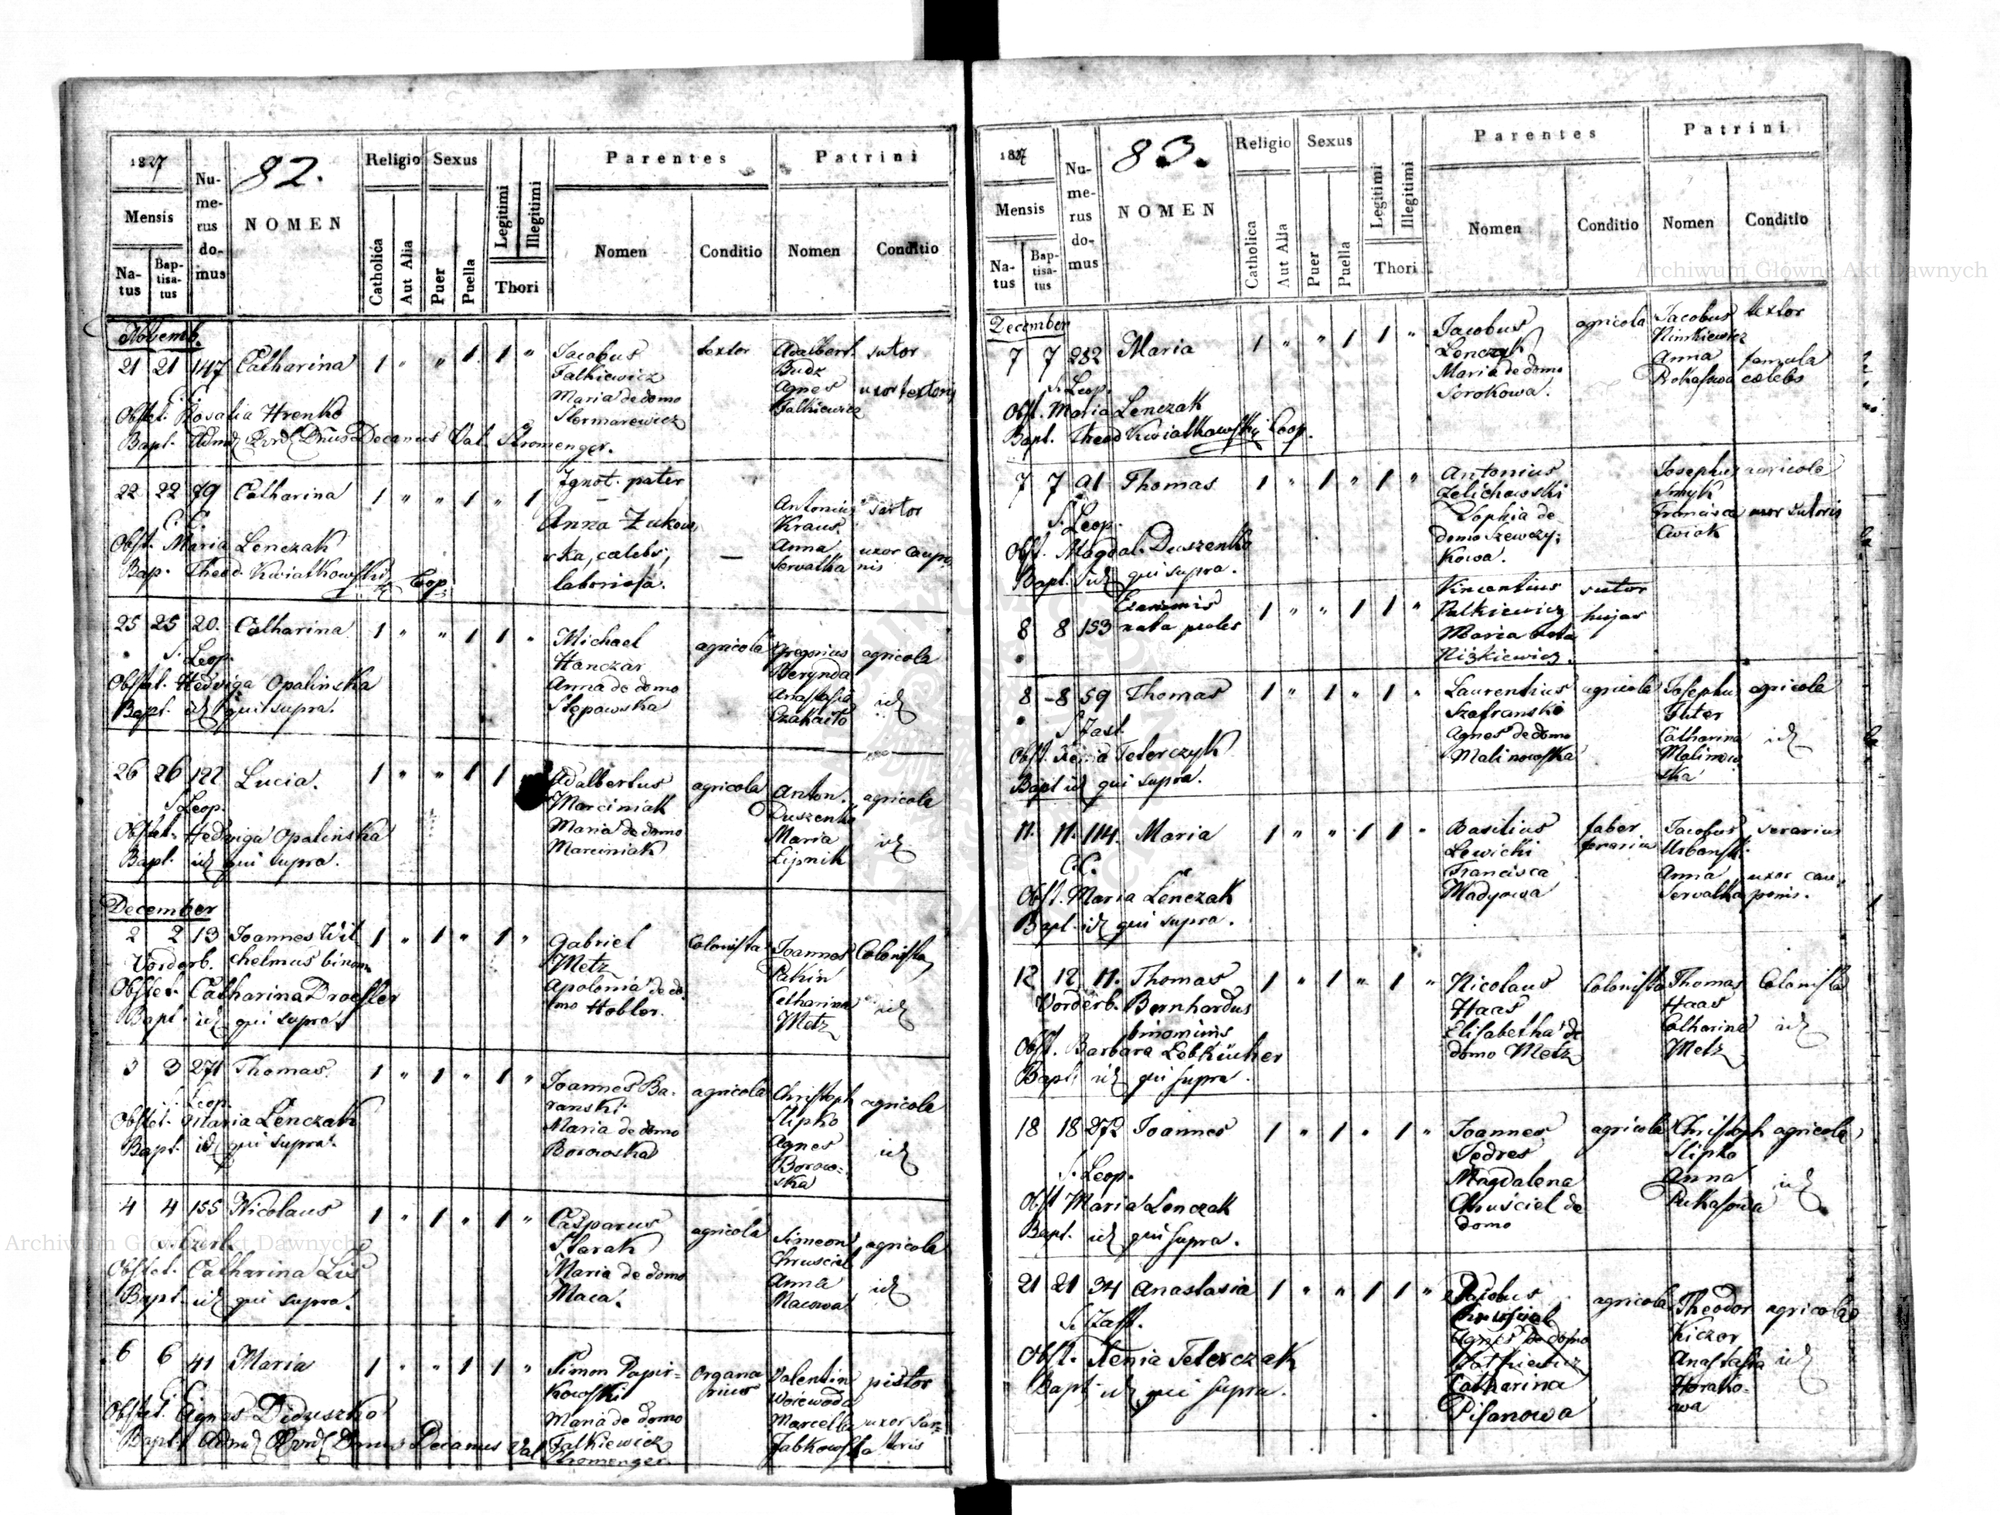 1827
82.
Religio Sexus
Parentes
Patrini
Nu-
me-
rus
do-
mus
Mensis
NOMEN
Legitimi
Illegitimi
Catholica
Aut Alia
Puer
Puella
Nomen
Conditio
Nomen
Conditio
Na-
tus
Bap-
tisa-
tus
Thori
Novemb.
21 21 147 Catharina 1 " " 1 1 "
Jacobus
Falkiewicz
Maria de domo
textor
Adalbert.
Budz
Agnes
Falkiewicz
sutor
uxor textoris
Obstet. Rosalia Hrenko
Bapt. Decanus Val. Stromenger.
22 22 79 Catharina 1 " " 1 " 1
C. C.
Ignot. pater
—
Anna Zukow
ska, caelebs,
laboriosa.
—
Antonius
Kraus
Anna
Servatka
sartor
uxor caupo
nis
Obst. Maria Lenczak
Bap. Theod Kwiatkowski Coop.
25 25 20. Catharina 1 " " 1 1 "
S. Leop.
Michael
Hanczar
Anna de domo
Stępowska
agricola
Gregorius
Berynda
Anastasia
agricola
id
Obstet. Hedviga Opalinska
Bapt. id qui supra.
26 26 122 Lucia. 1 " " 1 1
S. Leop.
Adalbertus
Marciniak
Maria de domo
Marciniak
agricola
Anton.
Duszenko
Maria
Lipnik
agricola
id
Obstet. Hedviga Opalinska
Bapt. id qui supra.
December
2 2 13 Joannes Wil
chelmus binom
Vorderb.
1 " 1 " 1 "
Gabriel
Metz
Apolonia de do-
mo Hobler.
Colonista
Joannes
Catharina
Metz
Colonista
id
Obstet. Catharina Droesler
Bapt. id qui supra
3 3 271 Thomas. 1 " 1 " 1 "
Leop.
Joannes Ba-
ranski
Maria de domo
Borowska
agricola
Christoph
Slipko
Agnes
Borow-
ska
agricola
id
Obstet. Maria Lenczak
Bapt. id qui supra.
4 4 155 Nicolaus 1 " 1 " 1 "
Casparus
Slarak
Maria de domo
Maca.
agricola
Simeon
Chrusciel
Anna
Macowa
agricola
id
Obstet. Catharina Lis
Bapt. id qui supra.
6 6 41 Maria 1 " " 1 1 "
Simon Papir-
kowski
Maria de domo
Falkiewicz
Organa
rius
Valentin
Woiewoda
Marcella
Jabkowska
pistor
uxor sar-
toris
Obstet. Agnes Diduszko
Bapt. Decanus Val
Stromenger
1827
83.
Religio Sexus
Parentes
Patrini
Nu-
me-
rus
do-
mus
Mensis
NOMEN
Legitimi
Illegitimi
Catholica
Aut Alia
Puer
Puella
Nomen
Conditio
Nomen
Conditio
Na-
tus
Bap-
tisa-
tus
Thori
December
7 7 282 Maria 1 " " 1 1 "
S. Leop.
Jacobus
Lenczyk
Maria de domo
Sorokowa.
agricola
Jacobus
Nimkiewicz
Anna
textor
famula
caelebs
Obst. Maria Lenczak
Bapt. Theod Kwiatkowski Coop.
7 7 91 Thomas 1 " 1 " 1 "
S. Leop.
Antonius
Zelichowski
Sophia de
domo Szewczy-
kowa.
Josephus
Smyk
Francisca
Cwiok
agricola
uxor sutoris
Obst. Magdal. Duszenko
Bapt. id qui supra.
8 8 153 Exanimis
nata proles
1 " " 1 1 "
Vincentius
Falkiewicz
Maria nata
Nizkiewicz.
sutor
hujas
8 8 59 Thomas 1 " 1 " 1 "
S. Zast.
Laurentius
Szafranski
Agnes de domo
Malinowska
agricola
Catharina
Malinow
ska
agricola
id
Obst. Xenia Teterczyk
Bapt id qui supra.
11. 11. 114. Maria 1 " " 1 1 "
C.C.
Basilius
Lewicki
Francisca
Madyowa
faber
ferarius
Jacobus
Urbanski
Anna
Servatka
serarius
uxor cau-
ponis.
Obst. Maria Lenczak
Bapt. id qui supra.
12 12 11. Thomas
Bernhardus
binominis
Vorderb.
1 " 1 " 1 "
Nicolaus
Haas
Elisabetha de
domo Metz
Colonista
Thomas
Haas
Catharina
Metz
Colonista
id
Obst. Barbara Lebkücher
Bapt. id qui supra.
18 18 272 Joannes 1 " 1 " 1 "
S. Leop.
Joannes
Fedres
Magdalena
Chrusciel de
domo
agricola
Christoph
Slipko
Anna
Pukasowa
agricola
id
Obst Maria Lenczak
Bapt. id qui supra.
21 21 34 Anastasia 1 " " 1 1 "
S. Zast.
Jacobus
Chrusciel
Agnes de domo
Catharina
Pisanowa
agricola
Theodor
Kiczor
Anastasia
Horako-
wa
agricola
id
Obst. Xenia Teterczak
Bapt id qui supra.
Archiwum Główne Akt Dawnych
Archiwum Główne Akt Dawnych